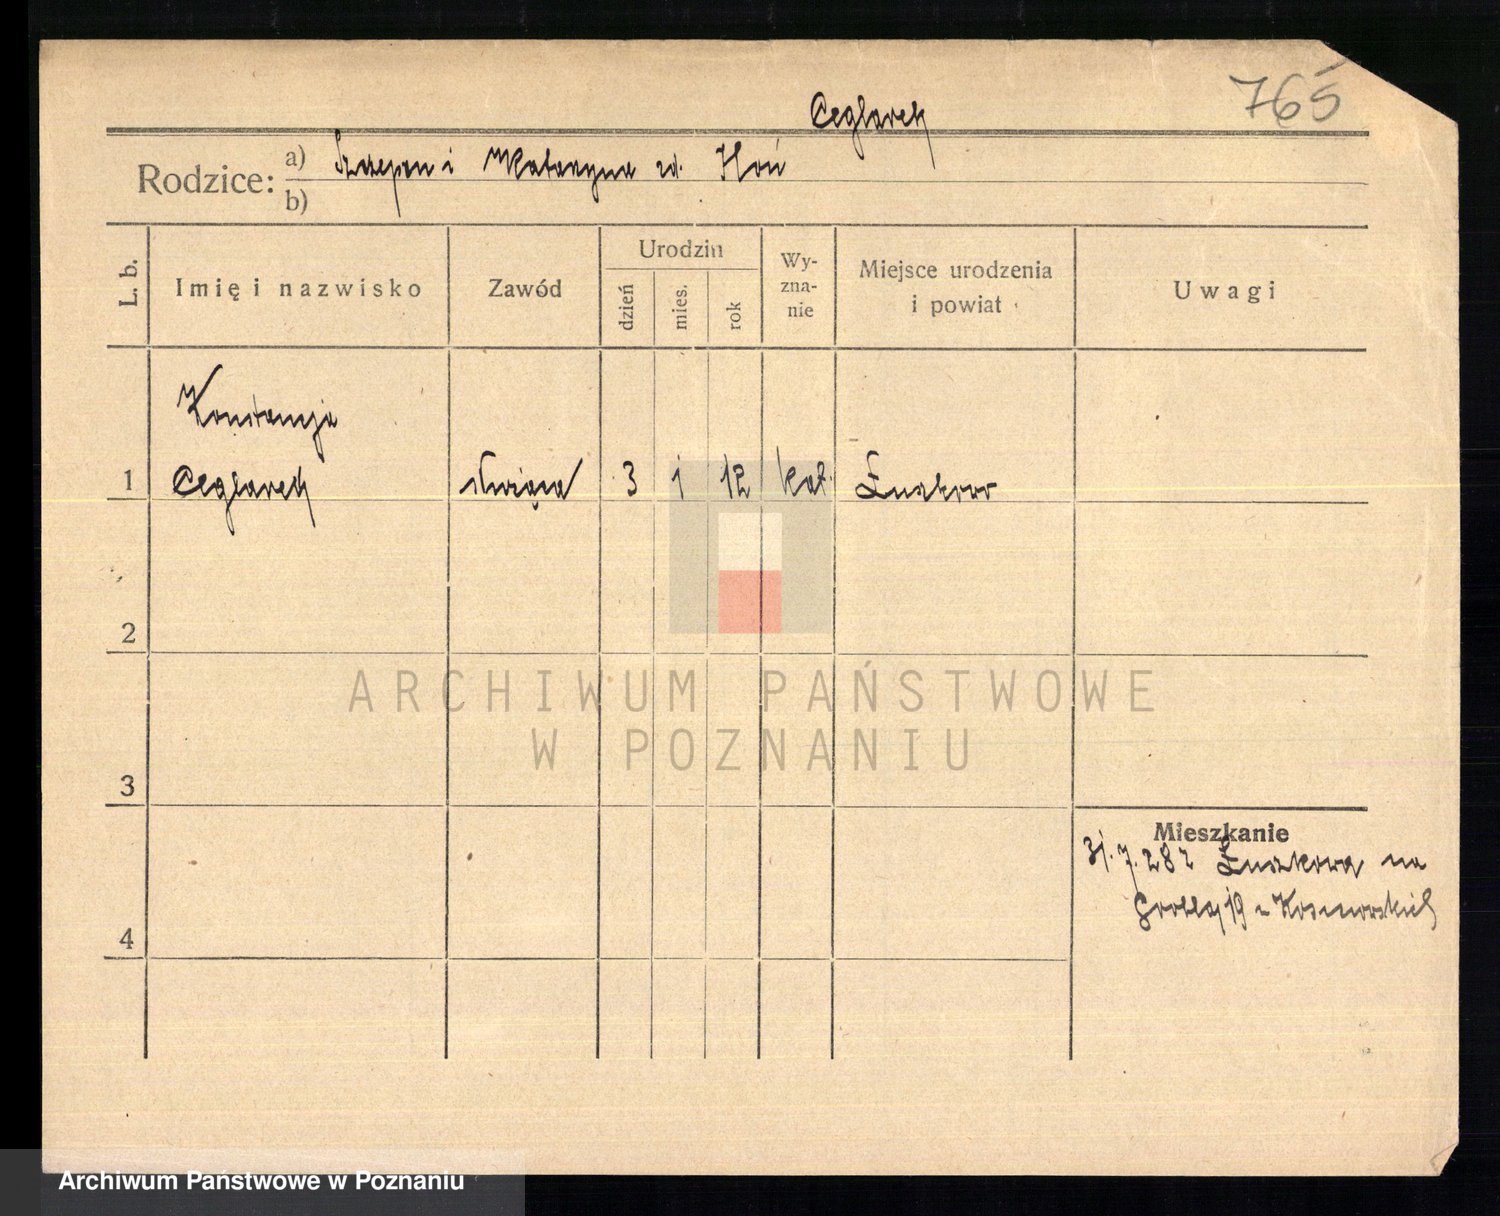 765
Ceglarek
Rodzice: a) Szczepan i Katarzyna zd. Hoń
b)
L. b.
Imię i nazwisko
Zawód
Urodzin
dzień
mies.
rok
Wy-
zna-
nie
Miejsce urodzenia
i powiat
Uwagi
Konstancja
1 Ceglarek służąca 3 1 12 kat. Łuszkowo
2
3
4
Mieszkanie
31.7.28 z Łuszkowa na
19 u
ARCHIWUM PAŃSTWOWE
W POZNANIU
Archiwum Państwowe w Poznaniu